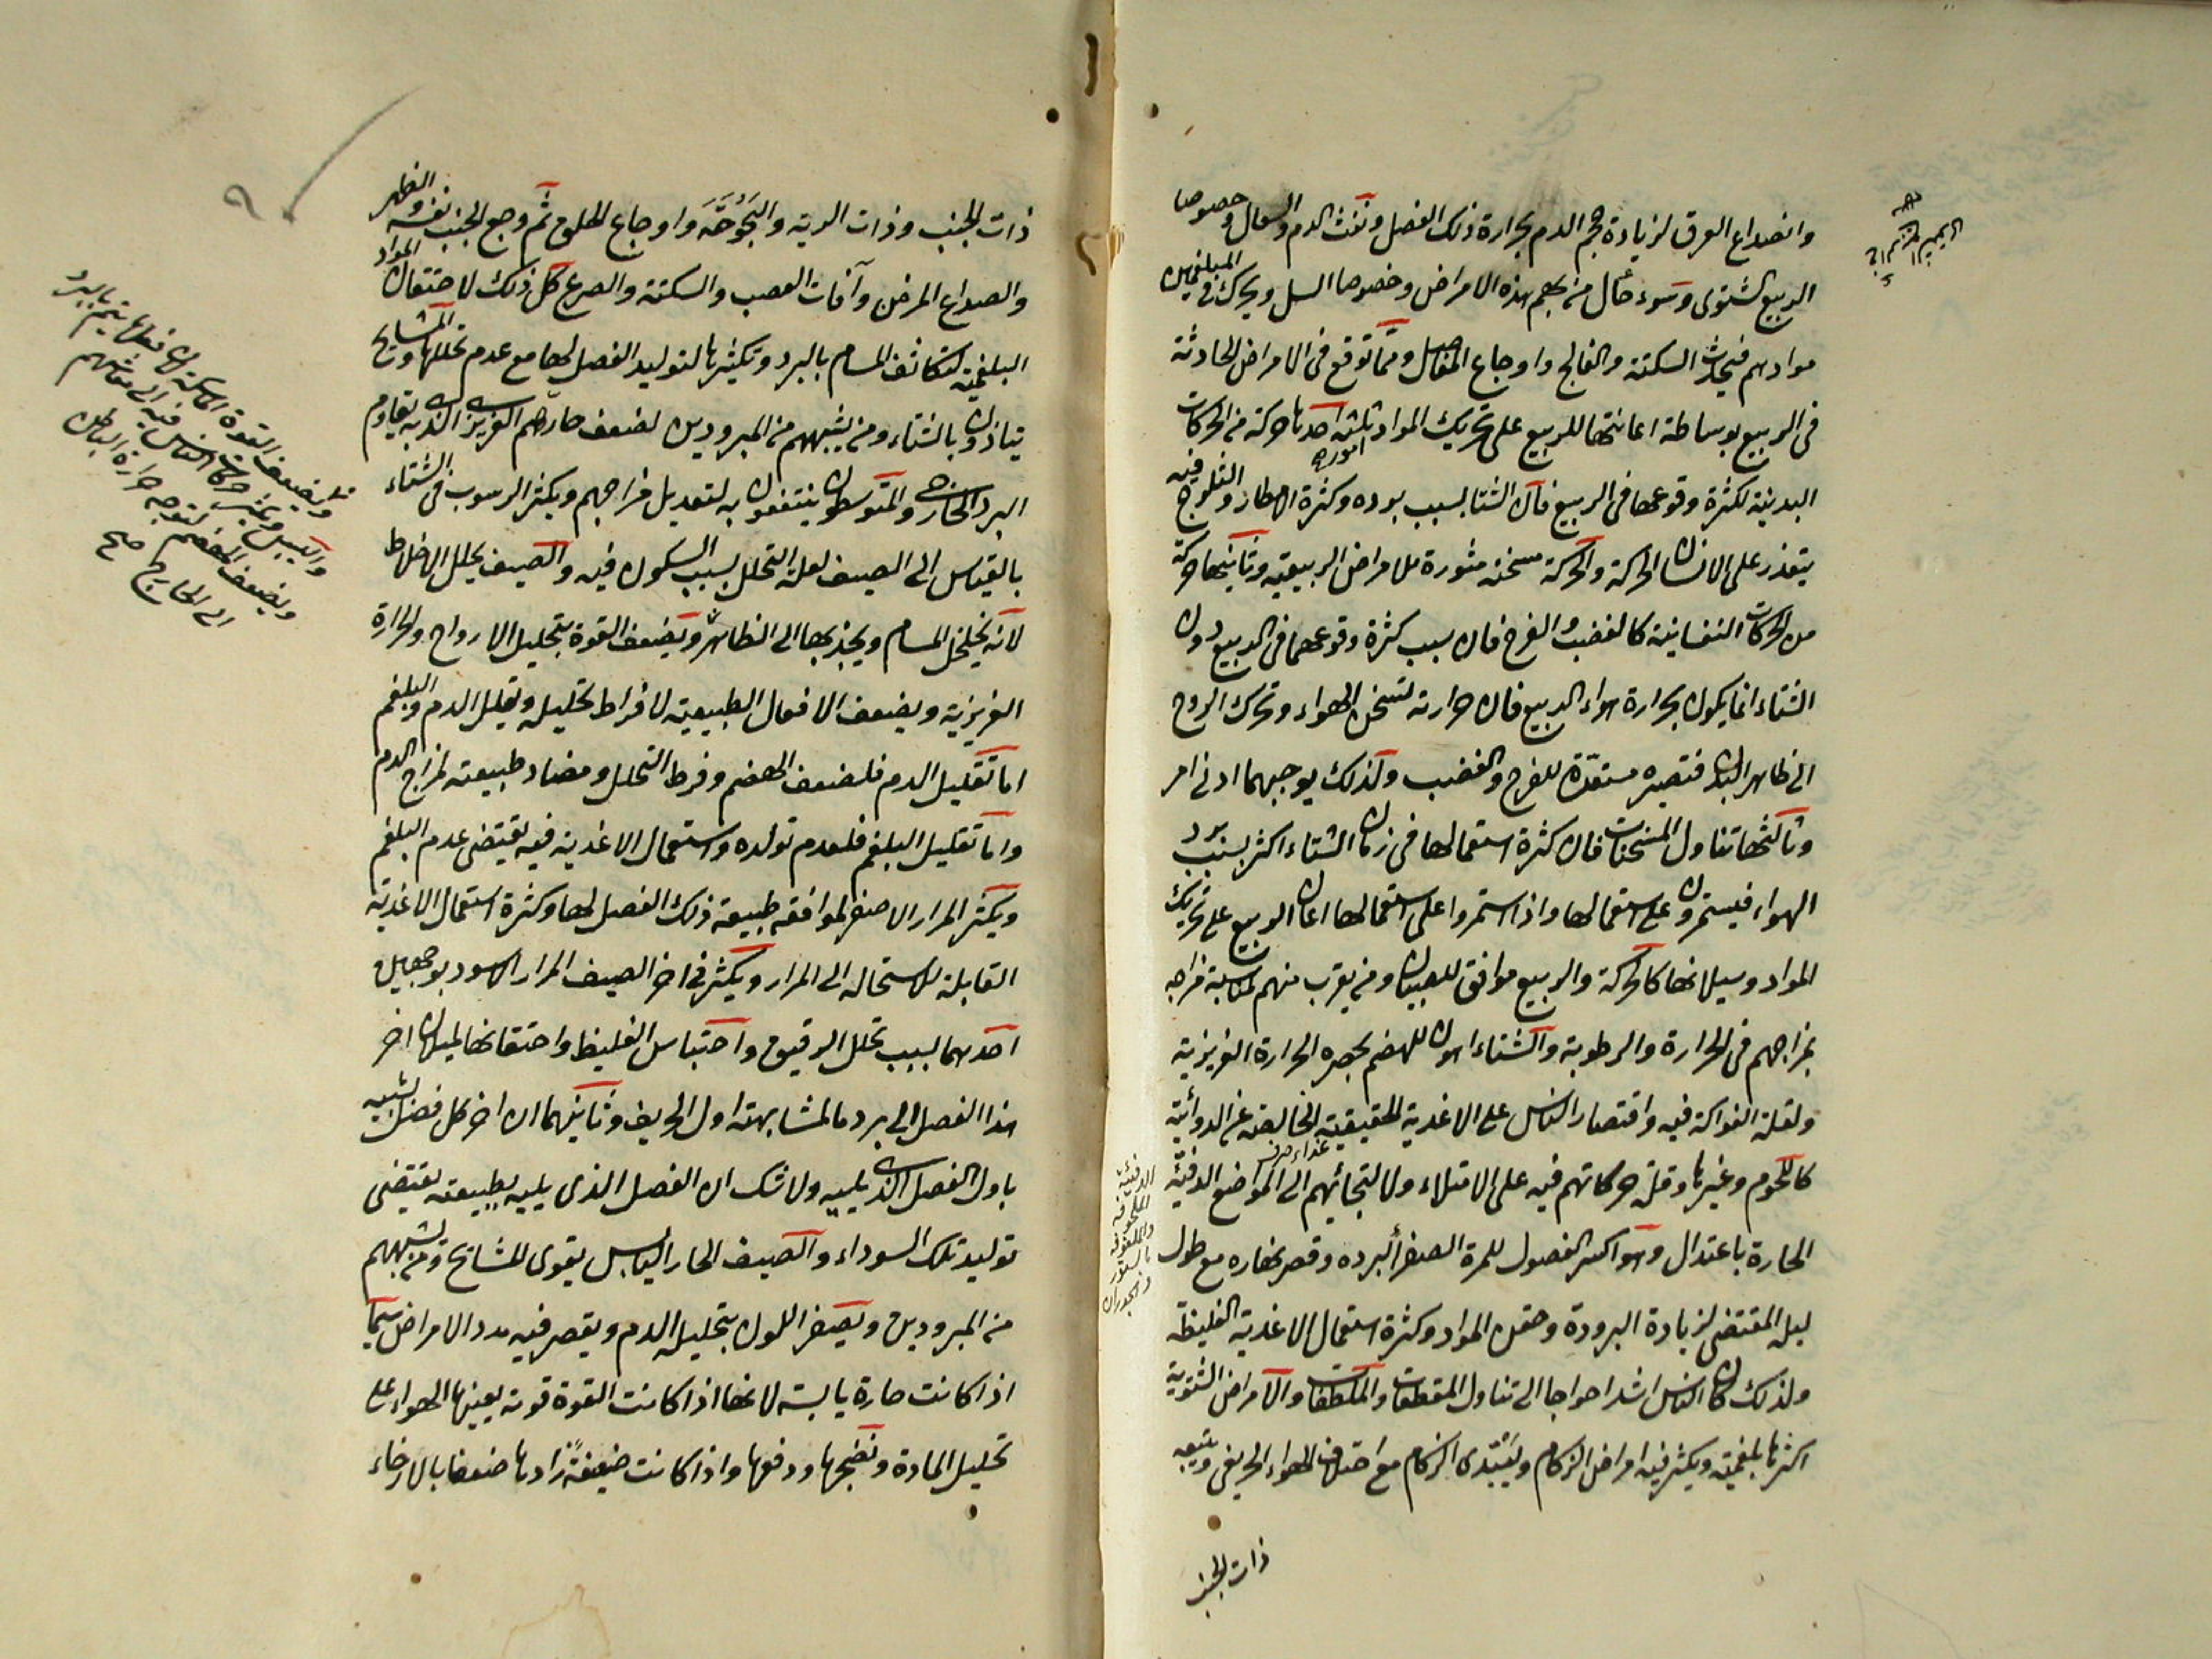 وانصداع العرق لزيادة حجم الدم بحرارة ذلك الفصل ونفث الدم والسعال وخصوصا
الربيع الشتوى وسوء حال من بهم هذه الامراض وخصوصا السل ويحرك فى المبلغمين
موادهم فيحدث السكتة والفالج واوجاع المفاصل ومما توقع فى الامراض الحادثة
فى الربيع بوساطة اعانتها للربيع على تحريك المواد ثلثة امور احدها حركة من الحركات
البدنية لكثرة وقوعها فى الربيع فان الشتا بسبب برده وكثرة الامطار والثلوج فيه
يتعذر على الانسان الحركة والحركة مسخنة مثورة للامراض الربيعية وثانيها حركة
من الحركات النفسانية كالغضب والفرح فان سبب كثرة وقوعهما فى الربيع دون
الشتاء انما يكون بحرارة هواء الربيع فان حرارته تسخن الهواء وتحرك الروح
الى ظاهر البدن فتصيره مستعدة للفرح والغضب ولذلك يوجبهما ادنى امر
وثالثها تناول المسخنات فان كثرة استعمالها فى زمان الشتاء اكثر بسبب برد
الهواء فيستمرون على استعمالها واذا استمروا على استعمالها اعان الربيع على تحريك
المواد وسيلانها كالحركة والربيع موافق للصبيان ومن يقرب منهم لمناسبة مزاجه
بمزاجهم فى الحرارة والرطوبة والشتاء اعون للهضم بحصره الحرارة الغريزية
ولقلة الفواكه فيه واقتصار الناس على الاغذية الحقيقية الخالصة عن الدوائية
كاللحوم وغيرها وقلة حركاتهم فيه على الامتلاء ولالتجائهم الى المواضع الدفئة
الحارة باعتدال وهو اكسر الفصول للمرة الصفرا لبرده وقصر نهاره مع طول
ليله المقتضى لزيادة البرودة وحقن المواد وكثرة استعمال الاغذية الغليظة
ولذلك كان الناس اشد احواجا الى تناول المقطعات والملطفات والامراض الشتوية
اكثرها بلغمية ويكثر فيه امراض الزكام ويبتدى الزكام مع اختلاف الهواء الخريفى ويتبعه
ذات الجنب
ذات الجنب وذات الرية والبحوحة واوجاع الحلق ثم وجع الجنب نفسه والظهر
والصداع المزمن وآفات العصب والسكتة والصرع كل ذلك لاحتقان المواد
البلغمية لتكاثف المسام بالبرد وتكثيرها لتوليد الفصل لها مع عدم تحللها والمشايخ
يتاذون بالشتاء ومن يشبههم من المبرودين لضعف حارهم الغريزى الذى به يقاوم
البرد الخارجى والمتوسطون ينتفعون به لتعديل مزاجهم ويكثر الرسوب فى الشتاء
بالقياس الى الصيف لعلة التحلل بسبب السكون فيه والصيف يحلل الاخلاط
لانه يخلخل المسام ويجذبها الى الظاهر ويضعف القوة بتحليل الارواح والحرارة
الغريزية ويضعف الافعال الطبيعية لافراط تحليله ويقلل الدم والبلغم
اما تقليل الدم فلضعف الهضم وفرط التحلل ومضاد طبيعته لمزاج الدم
واما تقليل البلغم فلعدم تولده واستعمال الاغذية فيه يقتضى عدم البلغم
ويكثر المرار الاصفر لموافقة طبيعة ذلك الفصل لها وكثرة استعمال الاغذية
القابلة للاستحالة الى المرار ويكثر فى اخر الصيف المرار الاسود بوجهين
احدهما بسبب تحلل الرقيق واحتباس الغليظ واحتقانها لميلان اخر
هذا الفصل الى برد ما لمشابهته اول الخريف وثانيهما ان اخر كل فصل يشبه
باول الفصل الذى يليه ولا شك ان الفصل الذى يليه بطبيعته يقتضى
توليد تلك السوداء والصيف الحار اليابس يقوى المشايخ ومن يشبههم
من المبرودين ويصفر اللون بتحليل الدم ويقصر فيه مدد الامراض سيما
اذا كانت حارة يابسة لانها اذا كانت القوة قوية يعينها الهواء على
تحليل المادة ونضجها ودفعها واذا كانت ضعيفة زادها ضعفا بالارخاء
ويضعف القوة الماسكة لان فعلها يتم بالبرد
واليبس ويكثر حركات الناس فيه الى معاشهم
ويضعف الهضم لتوجه حرارة الباطن
الى الخارج صح